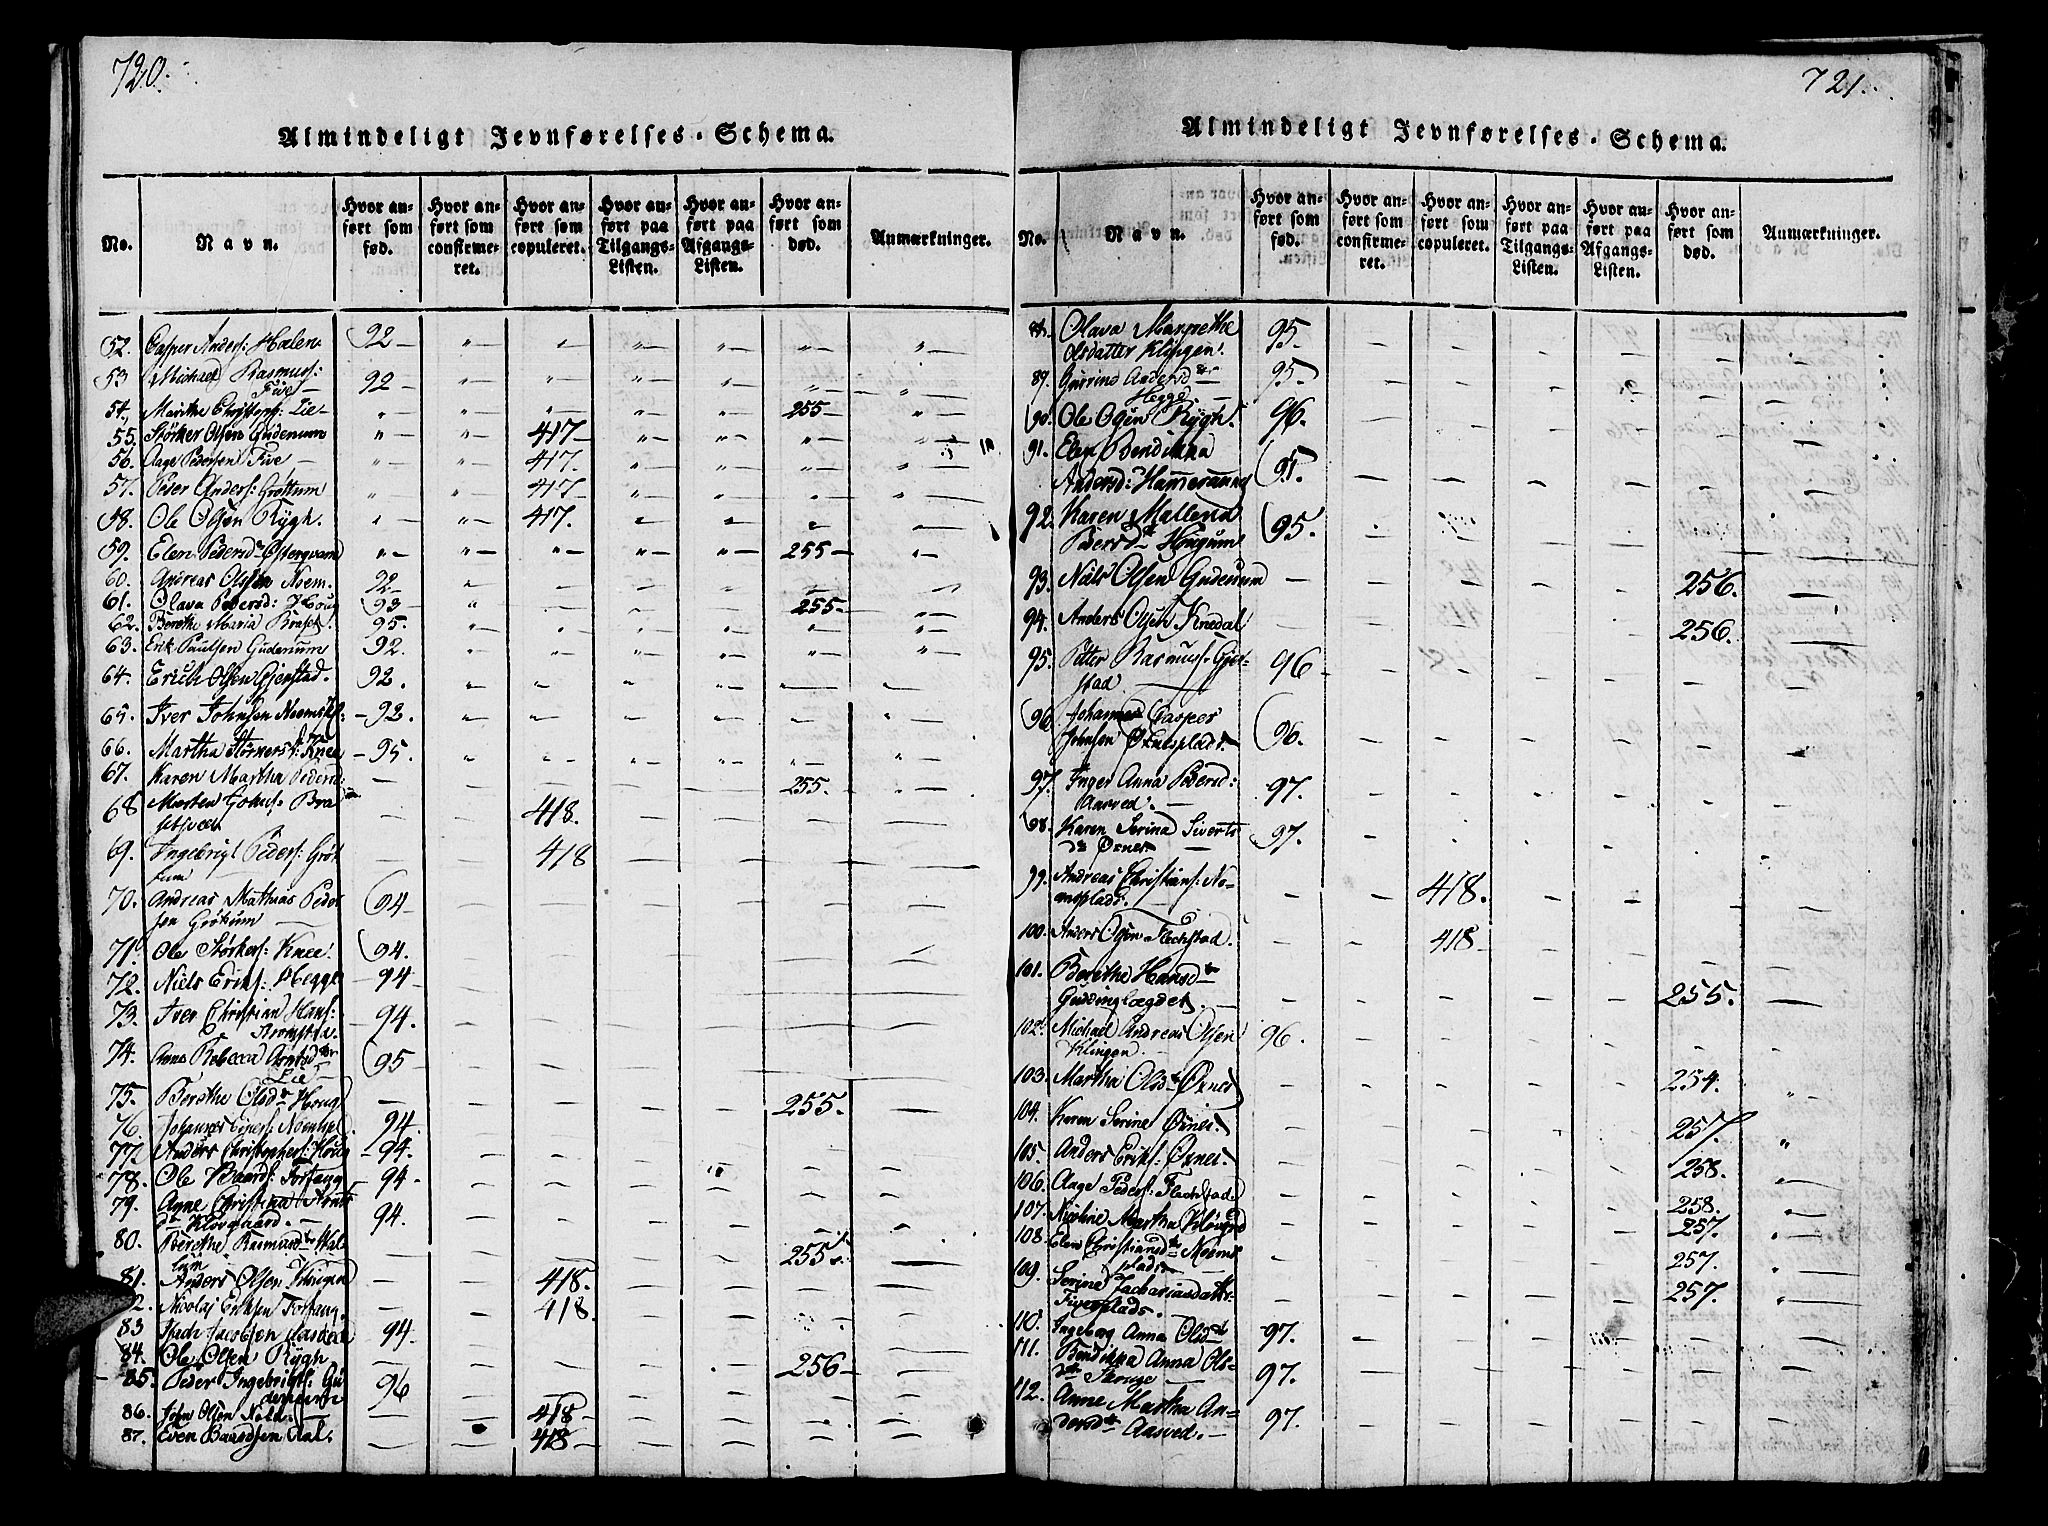 720.
Almindeligt Jevnførelses-Schema.
No.
Navn.
Hvor anført som fød.
Hvor anført som confirmeret.
Hvor anført som copuleret.
Hvor anført paa Tilgangs-Listen.
Hvor anført paa Afgangs-Listen.
Hvor anført som død.
Anmærkninger.
52. Casper Anders: Halem 92
53 Michael Rasmuss:
Five 92
54. Marithe Christoph: Lie 255
55. Størker Olsen Gudenum 417
56. Aage Pedersen Five 417.
57. Peder Anders: Grøttum 417
58. Ole Olsen Rygh. 417.
59. Elen Pedersdr Østergvam 255
60. Andreas Olsen Noem. 92
61. Olava Pedersd: Houg 93 255
62. Berethe Maria 95.
63. Erik Paulsen Gudenum 92.
64. Erich Olsen Gjerstad. 92.
65. Iver Johnsen 92.
66. Martha Størkersd: Knee 95.
67. Karen Martha Pedersd: 255.
68 Morten Johns: Bra 418.
69. Ingebrigt Peders: Gröt
tum 418
70. Andreas Mathias Peder
sen Grøtum 94
71. Ole Størkers: Knee. 94.
72. Niels Eriks: Hegge 94
73. Iver Christian Hans: 94.
74. Anne Rebecca Arntsdtter
Lie 95
75. Berethe Olsdr Houg 255.
76. Johannes 94.
77. Anders Christophers: Houg 94.
78. Ole Baards: Forfang 94.
79. Anne Christina Arnts
dr Klovgaard. 94.
80. Berethe Rasmusdtr Wal
lum 255.
81. Anders Olsen Klingen 418.
Nicolaj Eriksen Forfang. 418.
83 Isach Jacobsen Aasved 94.
84. Ole Olsen Rygh 256
85. Peder Ingebrigts: Gu 96
86. John Olsen 418
87. Even Baardsen Aal. 418
721.
Almindeligt Jevnførelses-Schema.
No.
Navn.
Hvor anført som fød.
Hvor anført som confirmeret.
Hvor anført som copuleret.
Hvor anført paa Tilgangs-Listen.
Hvor anført paa Afgangs-Listen.
Hvor anført som død.
Anmærkninger.
Olava Margrethe
Olsdatter Klingen. 95.
89. Gurrine Andersdr
Hegge 95.
90. Ole Olsen Rygh. 96.
91. Elen Bendikka
Andersd: 95.
92. Karen Mallena
Pedersdr Hougum 95.
93. Niels Olsen Gudenum 256.
94. Anders Olsen Knedal 256.
95. Petter Rasmuss: Gjer-
stad 96
96. Johannes Casper
Johnsen Øxnesplads. 96.
97. Inger Anna Pedersd:
Aasved. 97.
98. Karen Serina Siverts
dr Øxnes 97.
99. Andreas Christians: No-
emsplads. 418.
100. Anders Olsen Flechstad. 418
101. Berethe Hansdtr 255.
102. Michael Andreas Olsen
Klingen 96.
103. Martha Olsdr Øxnes 254.
104. Karen Serine Øxnes. 257.
105. Anders Eriks: Øxnes. 258.
106. Aage Peders: Flechstad 258.
107. Nicoline Martha 257.
108. Elen Christiansdtr Noems
plads 257.
109. Serine Zachariasdattr
Fivesplads. 257.
110. Ingeborg Anna Olsdtr 97.
111. Bendikka Anna Ols-
dtr 97.
112. Anne Martha An-
dersdtr Aasved. 97.